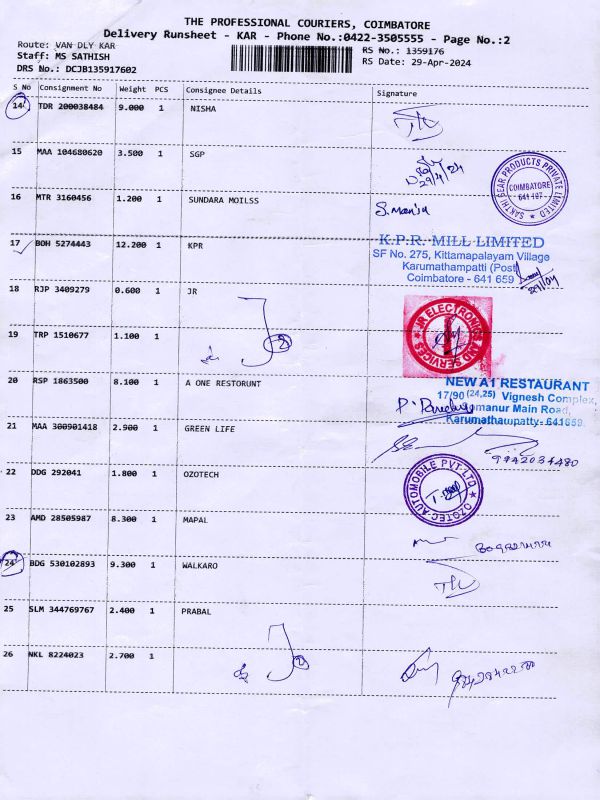 THE PROFESSIONAL COURIERS, COIMBATORE
Delivery Runsheet - KAR - Phone No.:0422-3505555 - Page No.:2
Route: VAN DLY KAR
RS No.: 1359176
Staff: MS SATHISH
RS Date: 29-Apr-2024
DRS No.: DCJB135917602
S No Consignment No Weight PCS Consignee Details Signature
14 TDR 200038484 9.000 1 NISHA
15 MAA 104680620 3.500 1 SGP
29/4/24
SAKTHI GEAR PRODUCTS PRIVATE LIMITED
COIMBATORE
641 107
16 MTR 3160456 1.200 1 SUNDARA MOILSS
S. Manju
17 BOH 5274443 12.200 1 KPR
K.P.R. MILL LIMITED
SF No. 275, Kittamapalayam Village
Karumathampatti (Post)
Coimbatore - 641 659
29/04
18 RJP 3409279 0.600 1 JR
JR ELECTRONICS AND SERVICES
19 TRP 1510677 1.100 1
20 RSP 1863500 8.100 1 A ONE RESTORUNT
NEW A1 RESTAURANT
17/90 (24,25) Vignesh Complex,
manur Main Road,
Karumathaupatty- 641659.
21 MAA 300901418 2.900 1 GREEN LIFE
9942034480
22 DDG 292041 1.800 1 OZOTECH
OZOTEC AUTOMOBILE PVT LTD
23 AMD 28505987 8.300 1 MAPAL
24 BDG 530102893 9.300 1 WALKARO
25 SLM 344769767 2.400 1 PRABAL
26 NKL 8224023 2.700 1